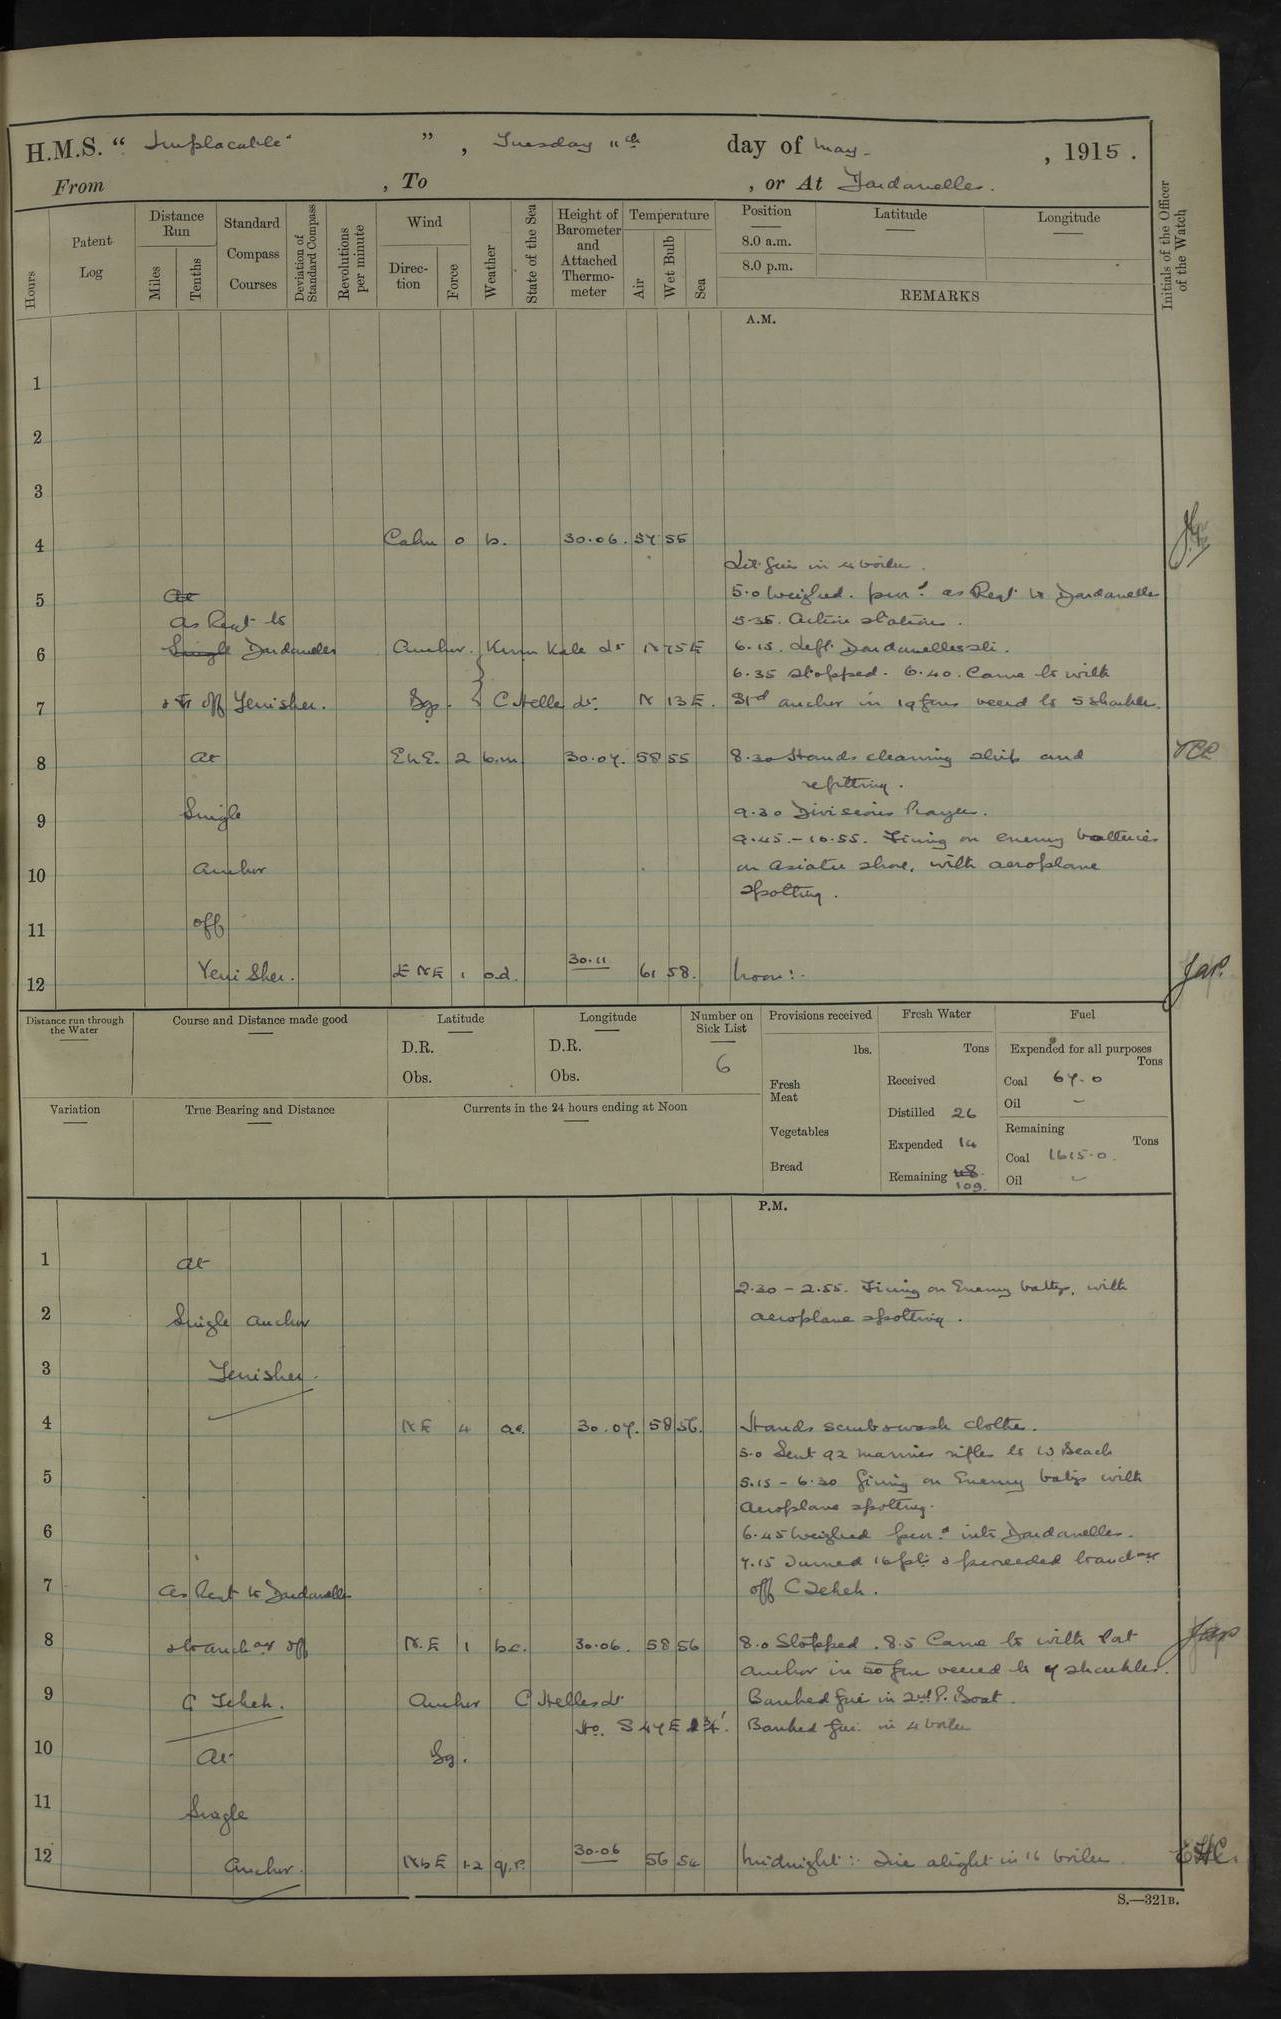 H.M.S. “ Implacable ” , Tuesday 11th day of May , 1915 .
From , To , or At Dardanelles.
Hours
Patent Log
Distance Run
Miles
Tenths
Standard Compass Courses
Deviation of Standard Compass
Revolutions per minute
Wind
Direction
Force
Weather
State of the Sea
Height of Barometer and Attached Thermometer
Temperature
Air
Wet Bulb
Sea
Position
8.0 a.m.
8.0 p.m.
Latitude
Longitude
REMARKS
Initials of the Officer of the Watch
A.M.
1
2
3
4 Calm 0 b. 30.06. 57 55
Lit fires in 4 boilers.
5 At 5.0 Weighed. proc.d as Reqt to Dardanelles
As Reqt to 5.35. Action stations.
6 Single Dardanelles Anchor. Kum Kale Lt N 75 E 6.15. Left Dardanelles
6.35 Stopped. 6.40. Came to with
7 & to off Yenisher. Bgs. C Helles Lt. N 13 E. Stbd anchor in 19 fms veered to 5 shackles.
8 At E b E. 2 b.m. 30.07. 58 55 8.30 Hands cleaning ship and
refitting.
9 Single 9.30 Divisions Prayers.
9.45.–10.55. Firing on enemy batteries
10 Anchor on Asiatic shore, with aeroplane
spotting.
11 off
12 Yeni Sher. E N E 1 o.d. 30.11 61 58. Noon:-
Distance run through the Water
Course and Distance made good
Latitude
D.R.
Obs.
Longitude
D.R.
Obs.
Number on Sick List
6
Provisions received
lbs.
Fresh Meat
Vegetables
Bread
Fresh Water
Tons
Received
Distilled 26
Expended 14
Remaining 48.
109.
Fuel
Expended for all purposes
Tons
Coal 67.0
Oil –
Remaining
Tons
Coal 1615.0
Oil –
Variation
True Bearing and Distance
Currents in the 24 hours ending at Noon
P.M.
1 At
2.30 – 2.55. Firing on Enemy battys, with
2 Single anchor aeroplane spotting.
3 Yenisher.
4 N E 4 30.07. 58 56. Hands scrub & wash clothes.
5.0 Sent 92 marines rifles to W Beach
5 5.15 – 6.30 firing on Enemy battys with
Aeroplane spotting.
6 6.45 Weighed proc.d into Dardanelles.
7.15 Turned 16 pts & proceeded to anchor
7 As Reqt to Dardanelles off C Tekeh.
8 & to anchor off N.E 1 b.c. 30.06. 58 56 8.0 Stopped. 8.5 Came to with Port
anchor in 20 fms veered to 7 shackles.
9 C Tekeh. Anchor C Helles Lt Banked fires in 2nd P. Boat.
Ho. S 47 E 1¾'. Banked fires in 4 boilers
10 At Bg.
11 Single
12 Anchor. N b E 1-2 q.r. 30.06 56 54 Midnight:: Fires alight in 16 boilers.
S.—321B.